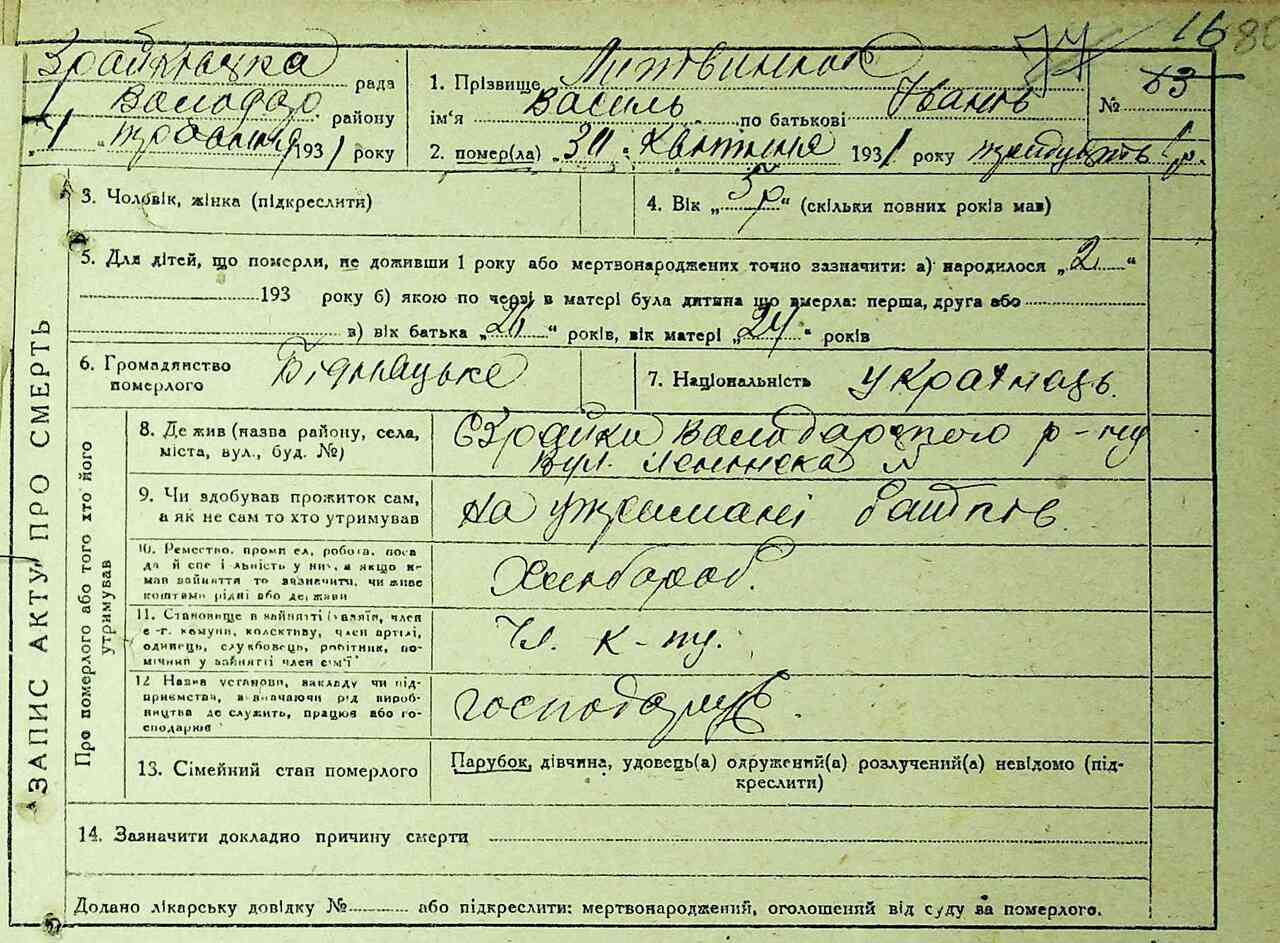 16 80
77
Зрайківська рада
Володар. району
"1" травня 1931 року
1. Прізвище Литвиненко
ім'я Василь по батькові Іванів
№ 83
2. помер(ла) "30" квітня 1931 року
3. Чоловік, жінка (підкреслити)
4. Вік „5р“ (скільки повних років мав)
5. Для дітей, що померли, не доживши 1 року або мертвонароджених точно зазначити: а) народилося „2“
193 року б) якою по черзі в матері була дитина що вмерла: перша, друга або
в) вік батька „26“ років, вік матері „24“ років
6. Громадянство померлого Бідняцьке
7. Національність українець.
ЗАПИС АКТУ ПРО СМЕРТЬ
Про померлого або того хто його утримував
8. Де жив (назва району, села, міста, вул., буд. №)
с Зрайки Володарського р-ну
вул. Ленінска №
9. Чи здобував прожиток сам, а як не сам то хто утримував
на утриманні батьків
10. Ремество, промисел, робота, посада й спеціальність у них, а якщо не мав зайняття то зазначити, чи живе коштами рідні або держави
Хлібороб.
11. Становище в зайнятті (хазяїн, член с-г. комуни, колективу, член артілі, одинець, службовець, робітник, помічник у зайнятті член сім'ї
Чл. к-ту.
12 Назва установи, закладу чи підприємства, визначаючи рід виробництва де служить, працює або господарює
господарює.
13. Сімейний стан померлого
Парубок, дівчина, удовець(а) одружений(а) розлучений(а) невідомо (підкреслити)
14. Зазначити докладно причину смерти
Додано лікарську довідку № або підкреслити: мертвонароджений, оголошений від суду за померлого.